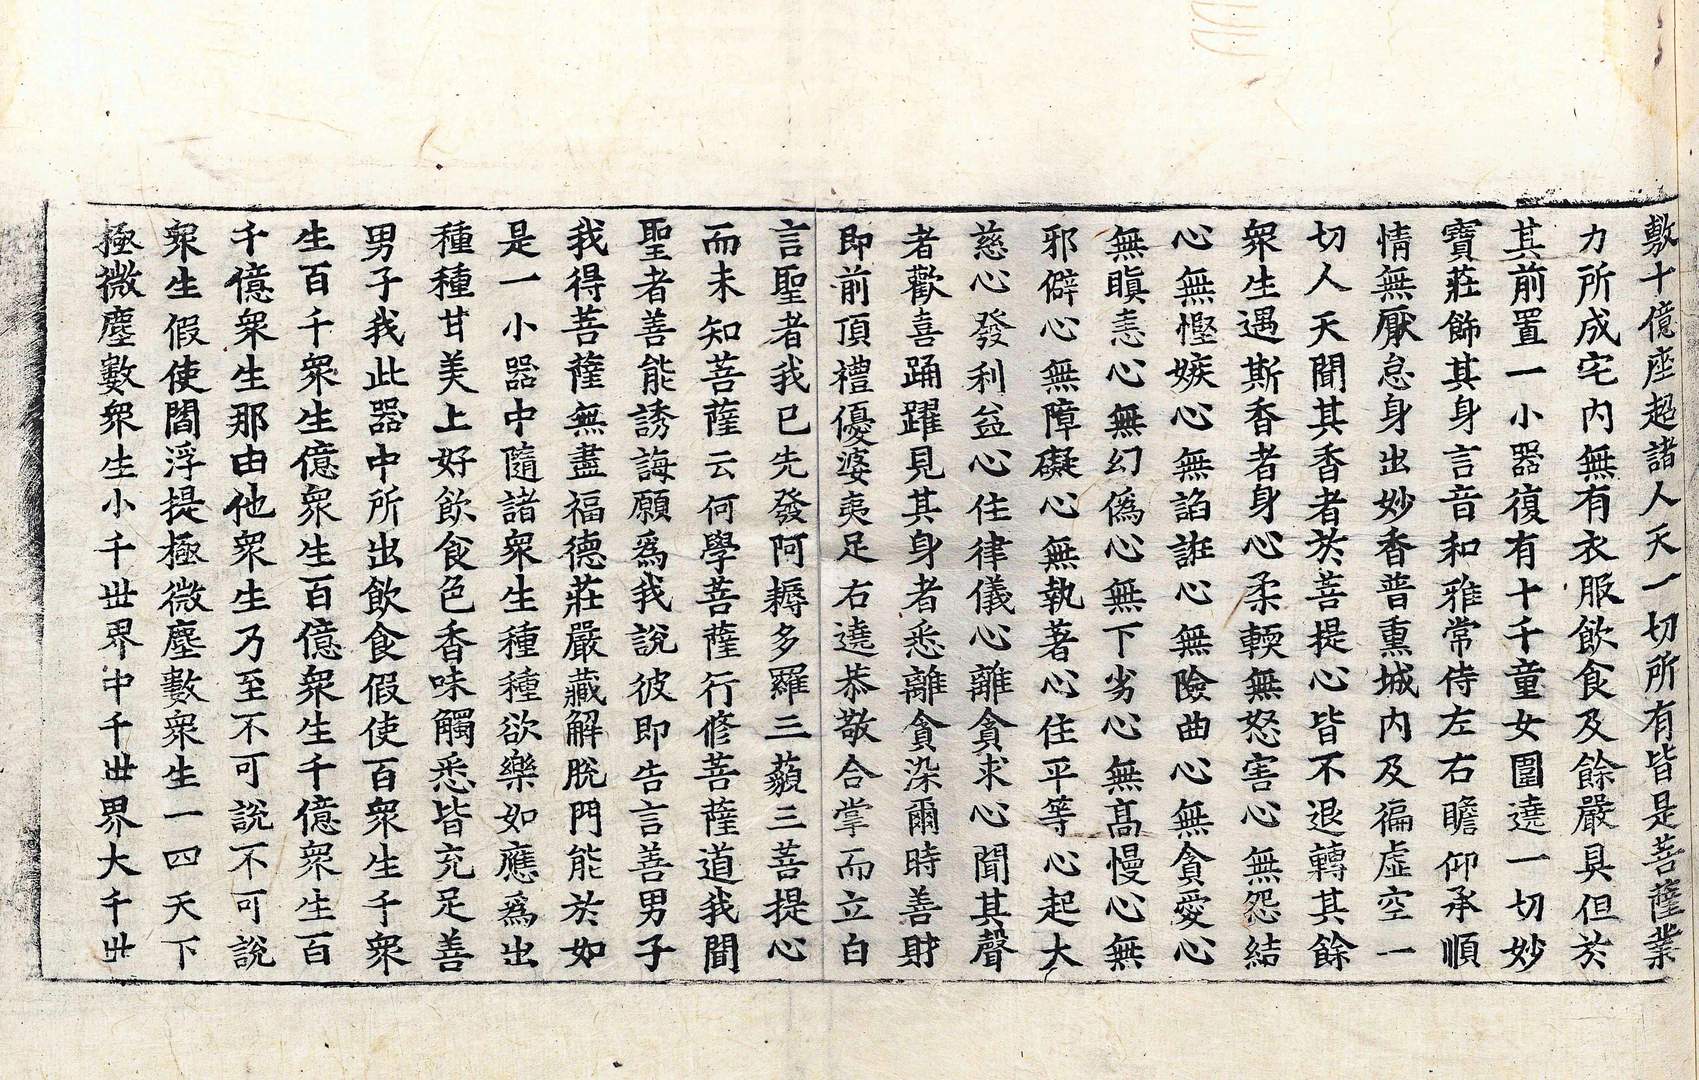 敷十億座超諸人天一切所有皆是菩薩業
力所成宅內無有衣服飲食及餘嚴具但於
其前置一小器復有十千童女圍遶一切妙
寶莊飾其身言音和雅常侍左右瞻仰承順
情無厭怠身出妙香普熏城內及徧虛空一
切人天聞其香者於菩提心皆不退轉其餘
衆生遇斯香者身心柔輭無怒害心無怨結
心無慳嫉心無諂誑心無險曲心無貪愛心
無瞋恚心無幻僞心無下劣心無高慢心無
邪僻心無障礙心無執著心住平等心起大
慈心發利益心住律儀心離貪求心聞其聲
者歡喜踊躍見其身者悉離貪染爾時善財
即前頂禮優婆夷足右遶恭敬合掌而立白
言聖者我已先發阿耨多羅三藐三菩提心
而未知菩薩云何學菩薩行修菩薩道我聞
聖者善能誘誨願爲我說彼即告言善男子
我得菩薩無盡福德莊嚴藏解脫門能於如
是一小器中隨諸衆生種種欲樂如應爲出
種種甘美上好飲食色香味觸悉皆充足善
男子我此器中所出飲食假使百衆生千衆
生百千衆生億衆生百億衆生千億衆生百
千億衆生那由他衆生乃至不可說不可說
衆生假使閻浮提極微塵數衆生一四天下
極微塵數衆生小千世界中千世界大千世